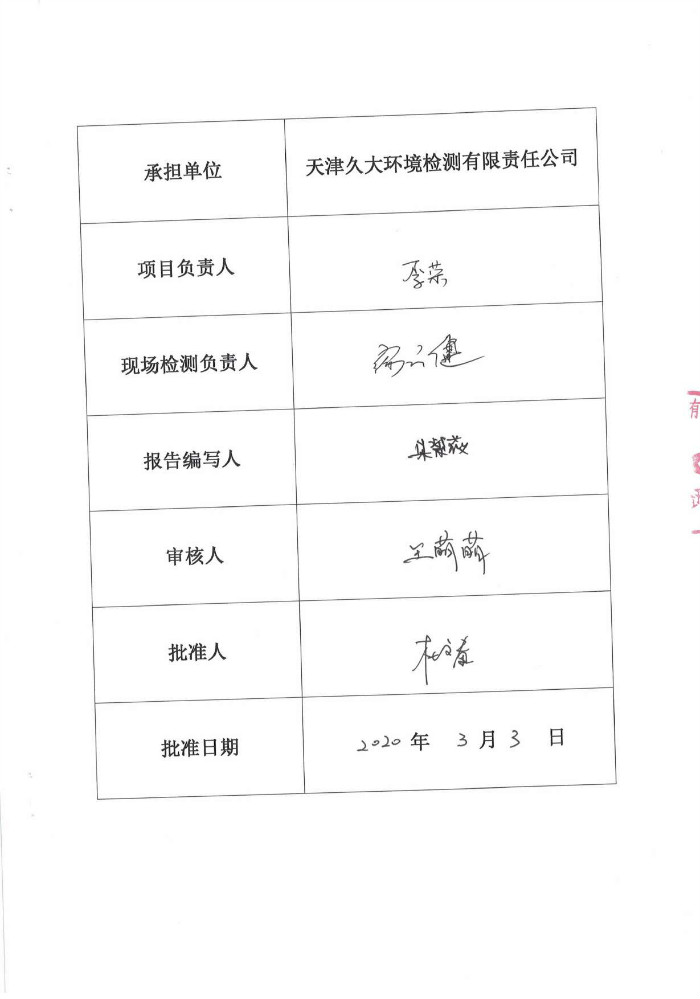 承担单位
天津久大环境检测有限责任公司
项目负责人
李荣
现场检测负责人
报告编写人
审核人
王萌萌
批准人
批准日期
2020 年 3 月 3 日